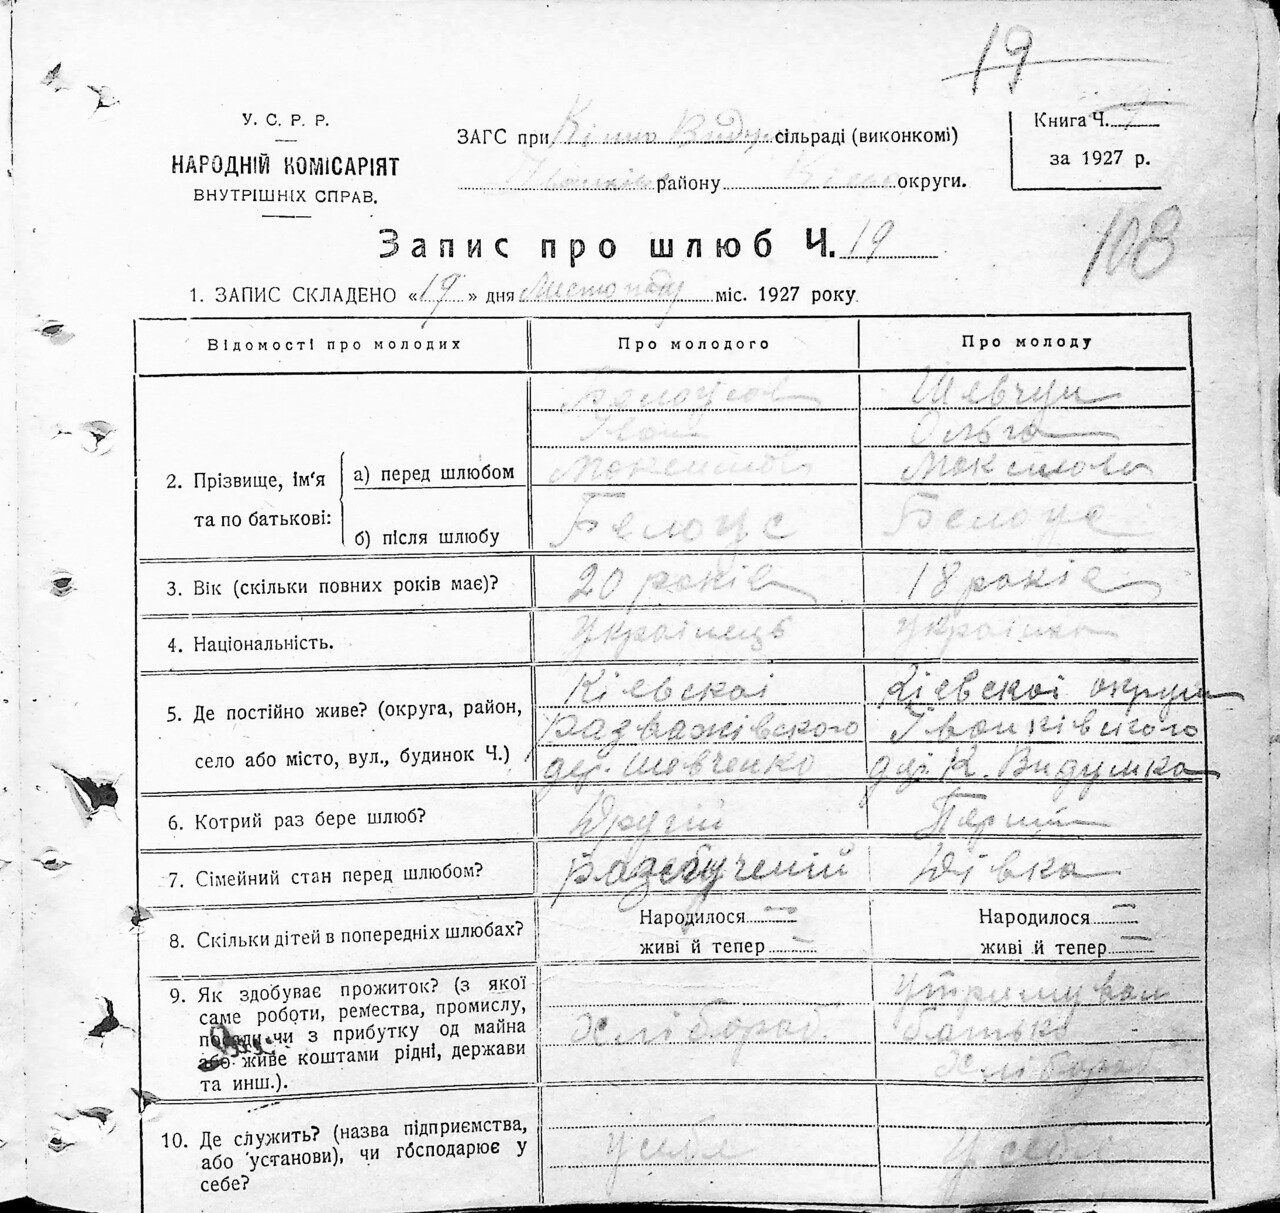 19
У. С. Р. Р.
НАРОДНІЙ КОМІСАРІЯТ
ВНУТРІШНІХ СПРАВ.
ЗАГС при сільраді (виконкомі)
району округи.
Книга Ч.
за 1927 р.
108
Запис про шлюб Ч. 19
1. ЗАПИС СКЛАДЕНО «19» дня Листопаду міс. 1927 року
Відомості про молодих Про молодого Про молоду
2. Прізвище, ім'я та по батькові:
а) перед шлюбом
Шевчук
Іван Ольга
б) після шлюбу
Белоус Белоус
3. Вік (скільки повних років має)? 20 років 18 років
4. Національність. Українець Українка
5. Де постійно живе? (округа, район, село або місто, вул., будинок Ч.)
Кіевскоі Кіевскоі округи
Розважівского Іванківского
дер. Шевченко дер. К. Видумка
6. Котрий раз бере шлюб? Другій
7. Сімейний стан перед шлюбом? Дівка
8. Скільки дітей в попередніх шлюбах? Народилося — Народилося —
живі й тепер — живі й тепер —
9. Як здобуває прожиток? (з якої
саме роботи, ремества, промислу,
посади чи з прибутку од майна
або живе коштами рідні, держави
та инш.).
Хлібороб.
батька
Хлібороб
10. Де служить? (назва підприємства,
або установи), чи господарює у
себе?
у себе у себе